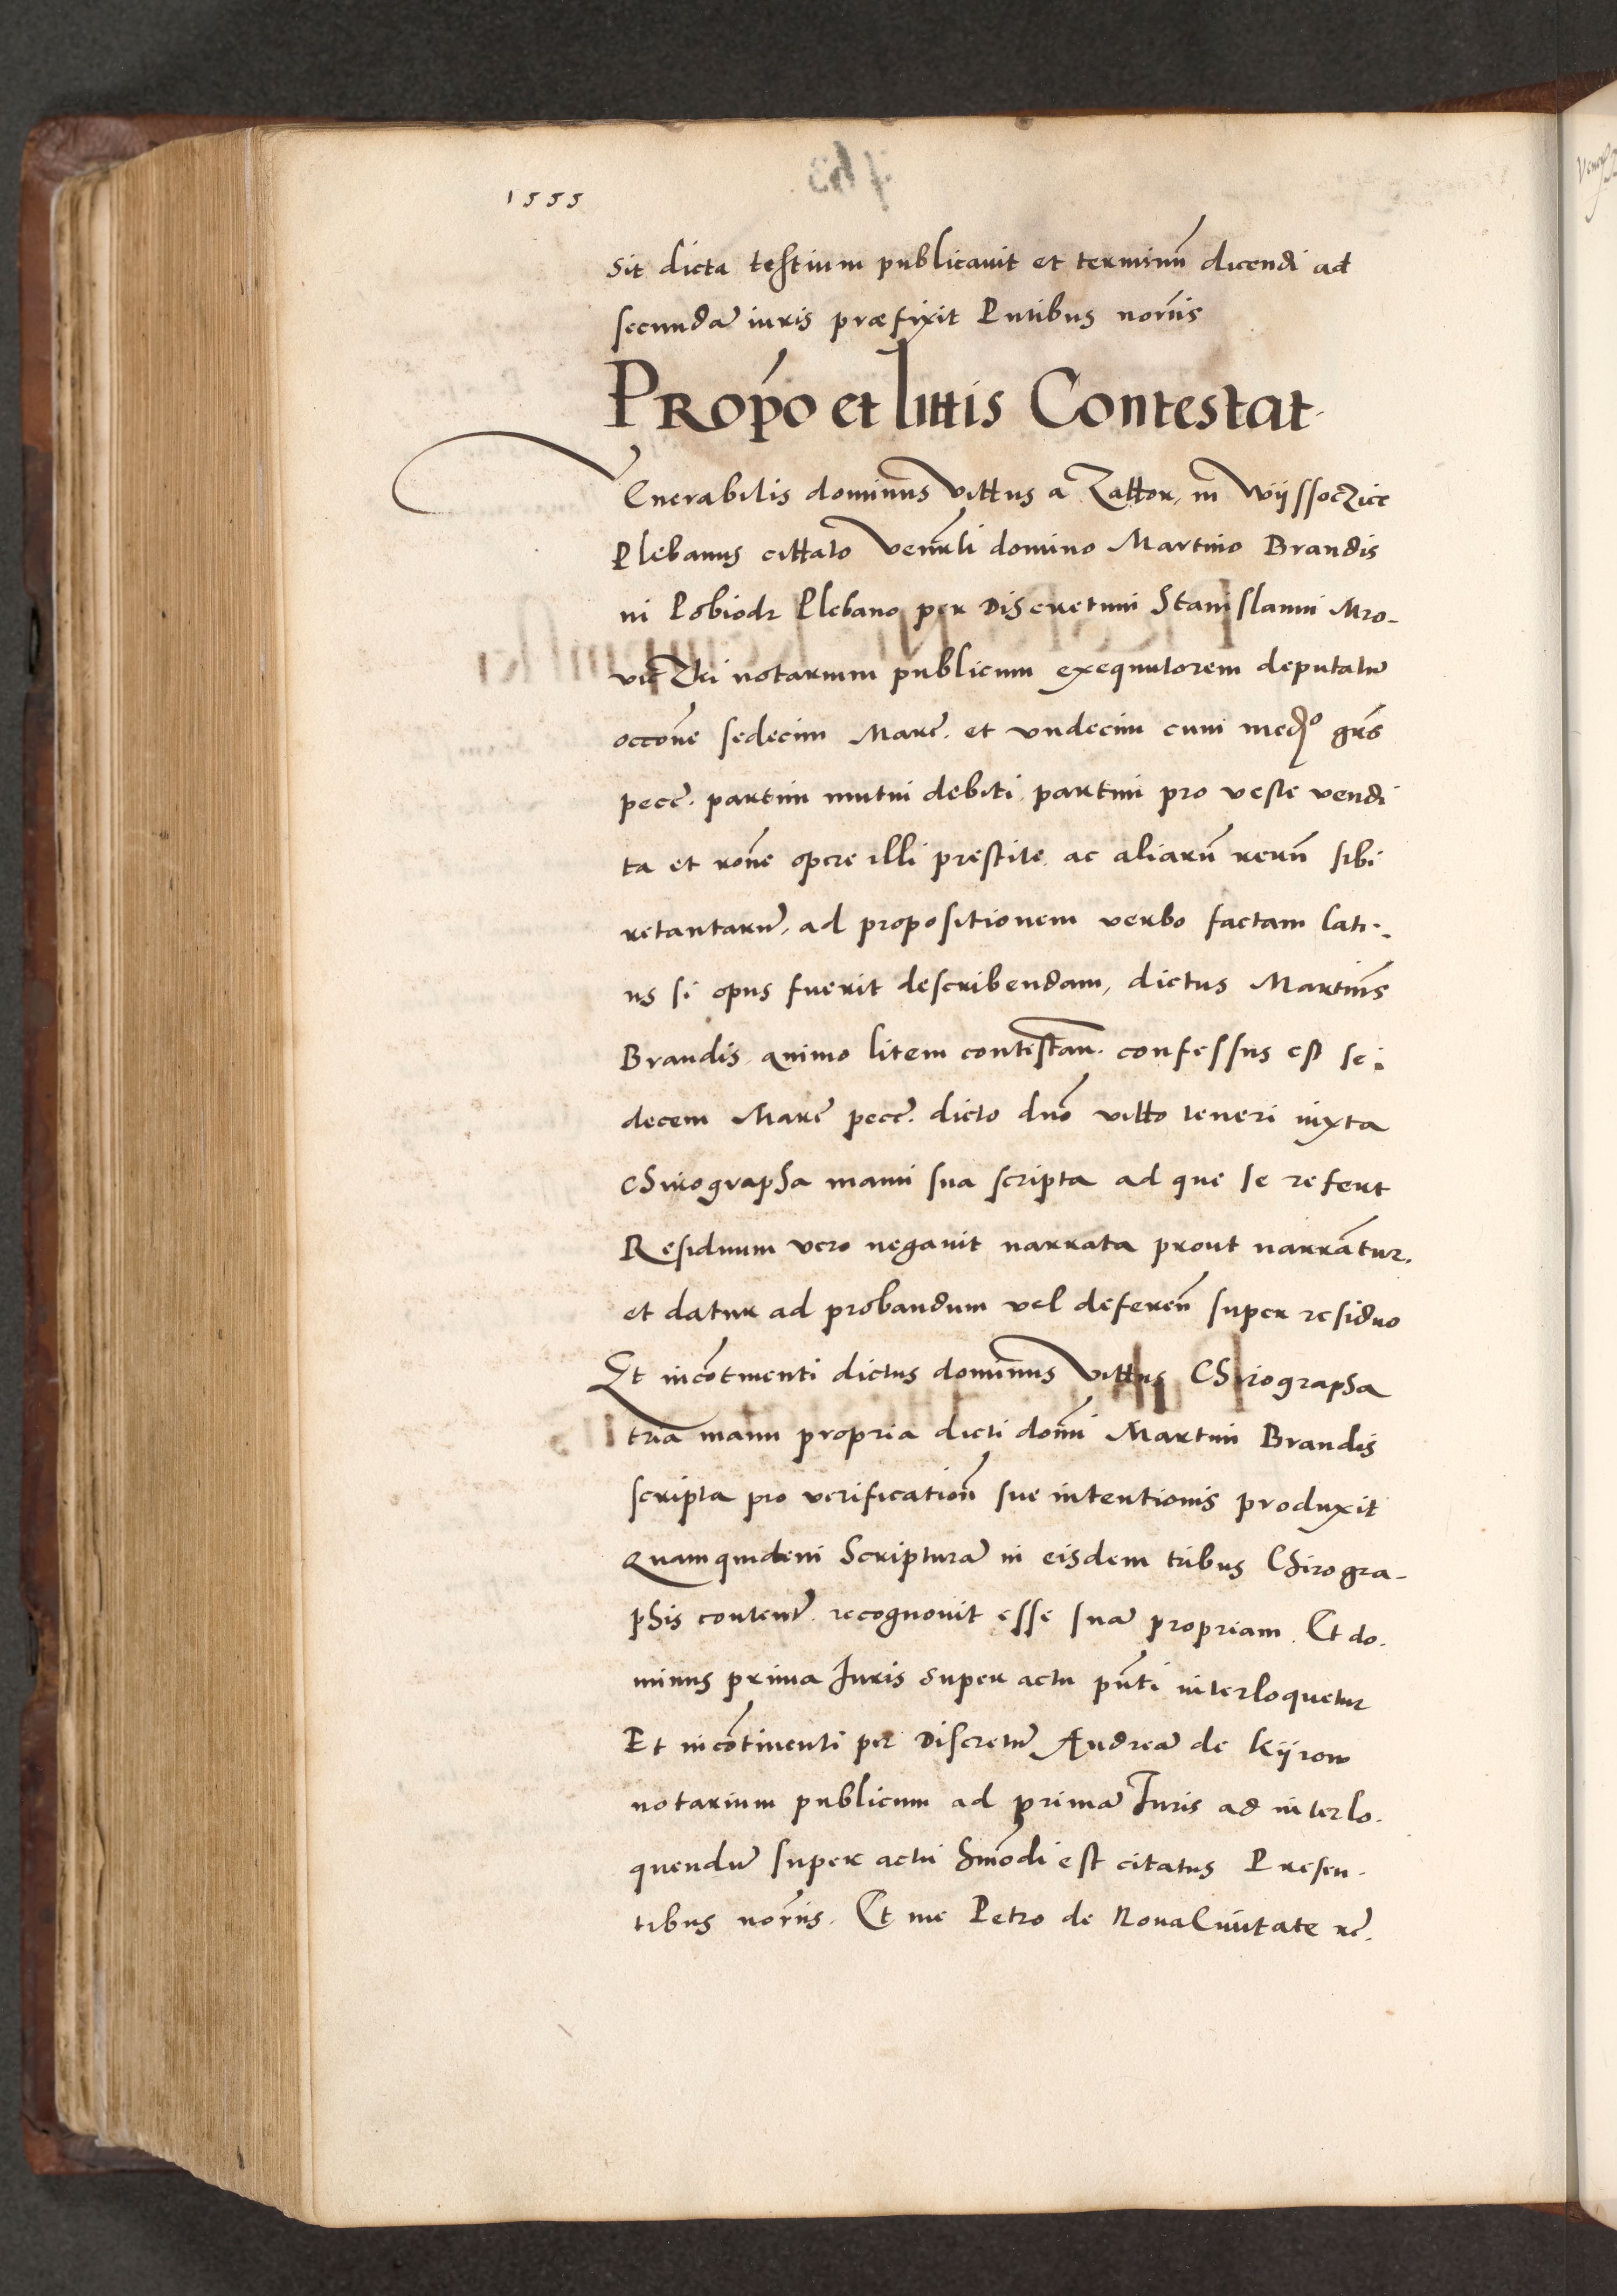 1555
sit dicta testium publicauit et terminũ dicendi ad
secundã iuris præfixit Pntibus norĩis
Propo͂ et littis Contestat.
Venerabilis dominus Vittus a Zattor, in Wÿssoczice
Plebanus cittato Venerli domino Martino Brandis
in Pobiedr Plebano per Discretum Stanislaum Mro-
viczki notarium publicum exequutorem deputatũ
occõne sedecim Marc. et vndecim cum medº grs̃
pecc̃. partim mutui debiti, partim pro veste vendi
ta et rõne opere illi prestite, ac aliarũ rerũ sibi
retantarũ, ad propositionem verbo factam lati-
us si opus fuerit describendam, dictus Martinus
Brandis, animo litem contestan̄. confessus est se-
decem Marc̃ pecc̃. dicto dño vitto teneri iuxta
Chirographa manu sua scripta ad que se refert
Residuum vero negauit narrata prout narrãtur.
et datur ad probandum vel deferen̄ super residuo
Et incõtinenti dictus dominus Vittus Chirographa
tria manu propria dicti domĩ Martini Brandis
scripta pro verificatioñ sue intentionis produxit
Quamquidem Scripturã in eisdem tribus Chirogra-
phis content̃. recognouit esse suã propriam. Et do-
minus prima Iuris super actu pñti interloquetur
Et incõtinenti per Discretũ Andreã de Kÿrow
notarium publicum ad primã Iuris ad interlo-
quendũ super actu hmõdi est citatus Presen-
tibus norĩis. Et me Petro de Noua Ciuitate rc̃.